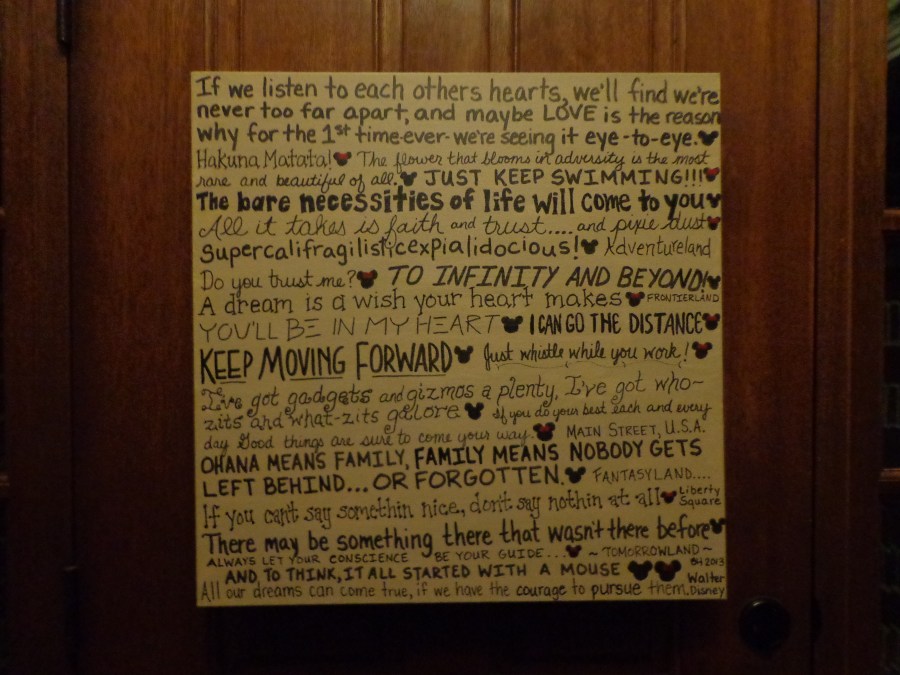 If we listen to each others hearts, we'll find we're
never too far apart, and maybe LOVE is the reason
why for the 1st time-ever-we're seeing it eye-to-eye.
Hakuna Matata! The flower that blooms in adversity is the most
rare and beautiful of all. JUST KEEP SWIMMING!!!
The bare necessities of life will come to you
All it takes is faith and trust.... and pixie dust
Supercalifragilisticexpialidocious! Adventureland
Do you trust me? TO INFINITY AND BEYOND!
A dream is a wish your heart makes FRONTIERLAND
YOU'LL BE IN MY HEART I CAN GO THE DISTANCE
KEEP MOVING FORWARD Just whistle while you work!
I've got gadgets and gizmos a plenty, I've got who-
zits and what-zits galore If you do your best each and every
day Good things are sure to come your way. MAIN STREET, U.S.A.
OHANA MEANS FAMILY, FAMILY MEANS NOBODY GETS
LEFT BEHIND... OR FORGOTTEN. FANTASYLAND....
If you can't say somethin nice, don't say nothin at all Liberty Square
There may be something there that wasn't there before
ALWAYS LET YOUR CONSCIENCE BE YOUR GUIDE... ~ TOMORROWLAND ~
AND, TO THINK, IT ALL STARTED WITH A MOUSE 2013
All our dreams can come true, if we have the courage to pursue them. Walter Disney